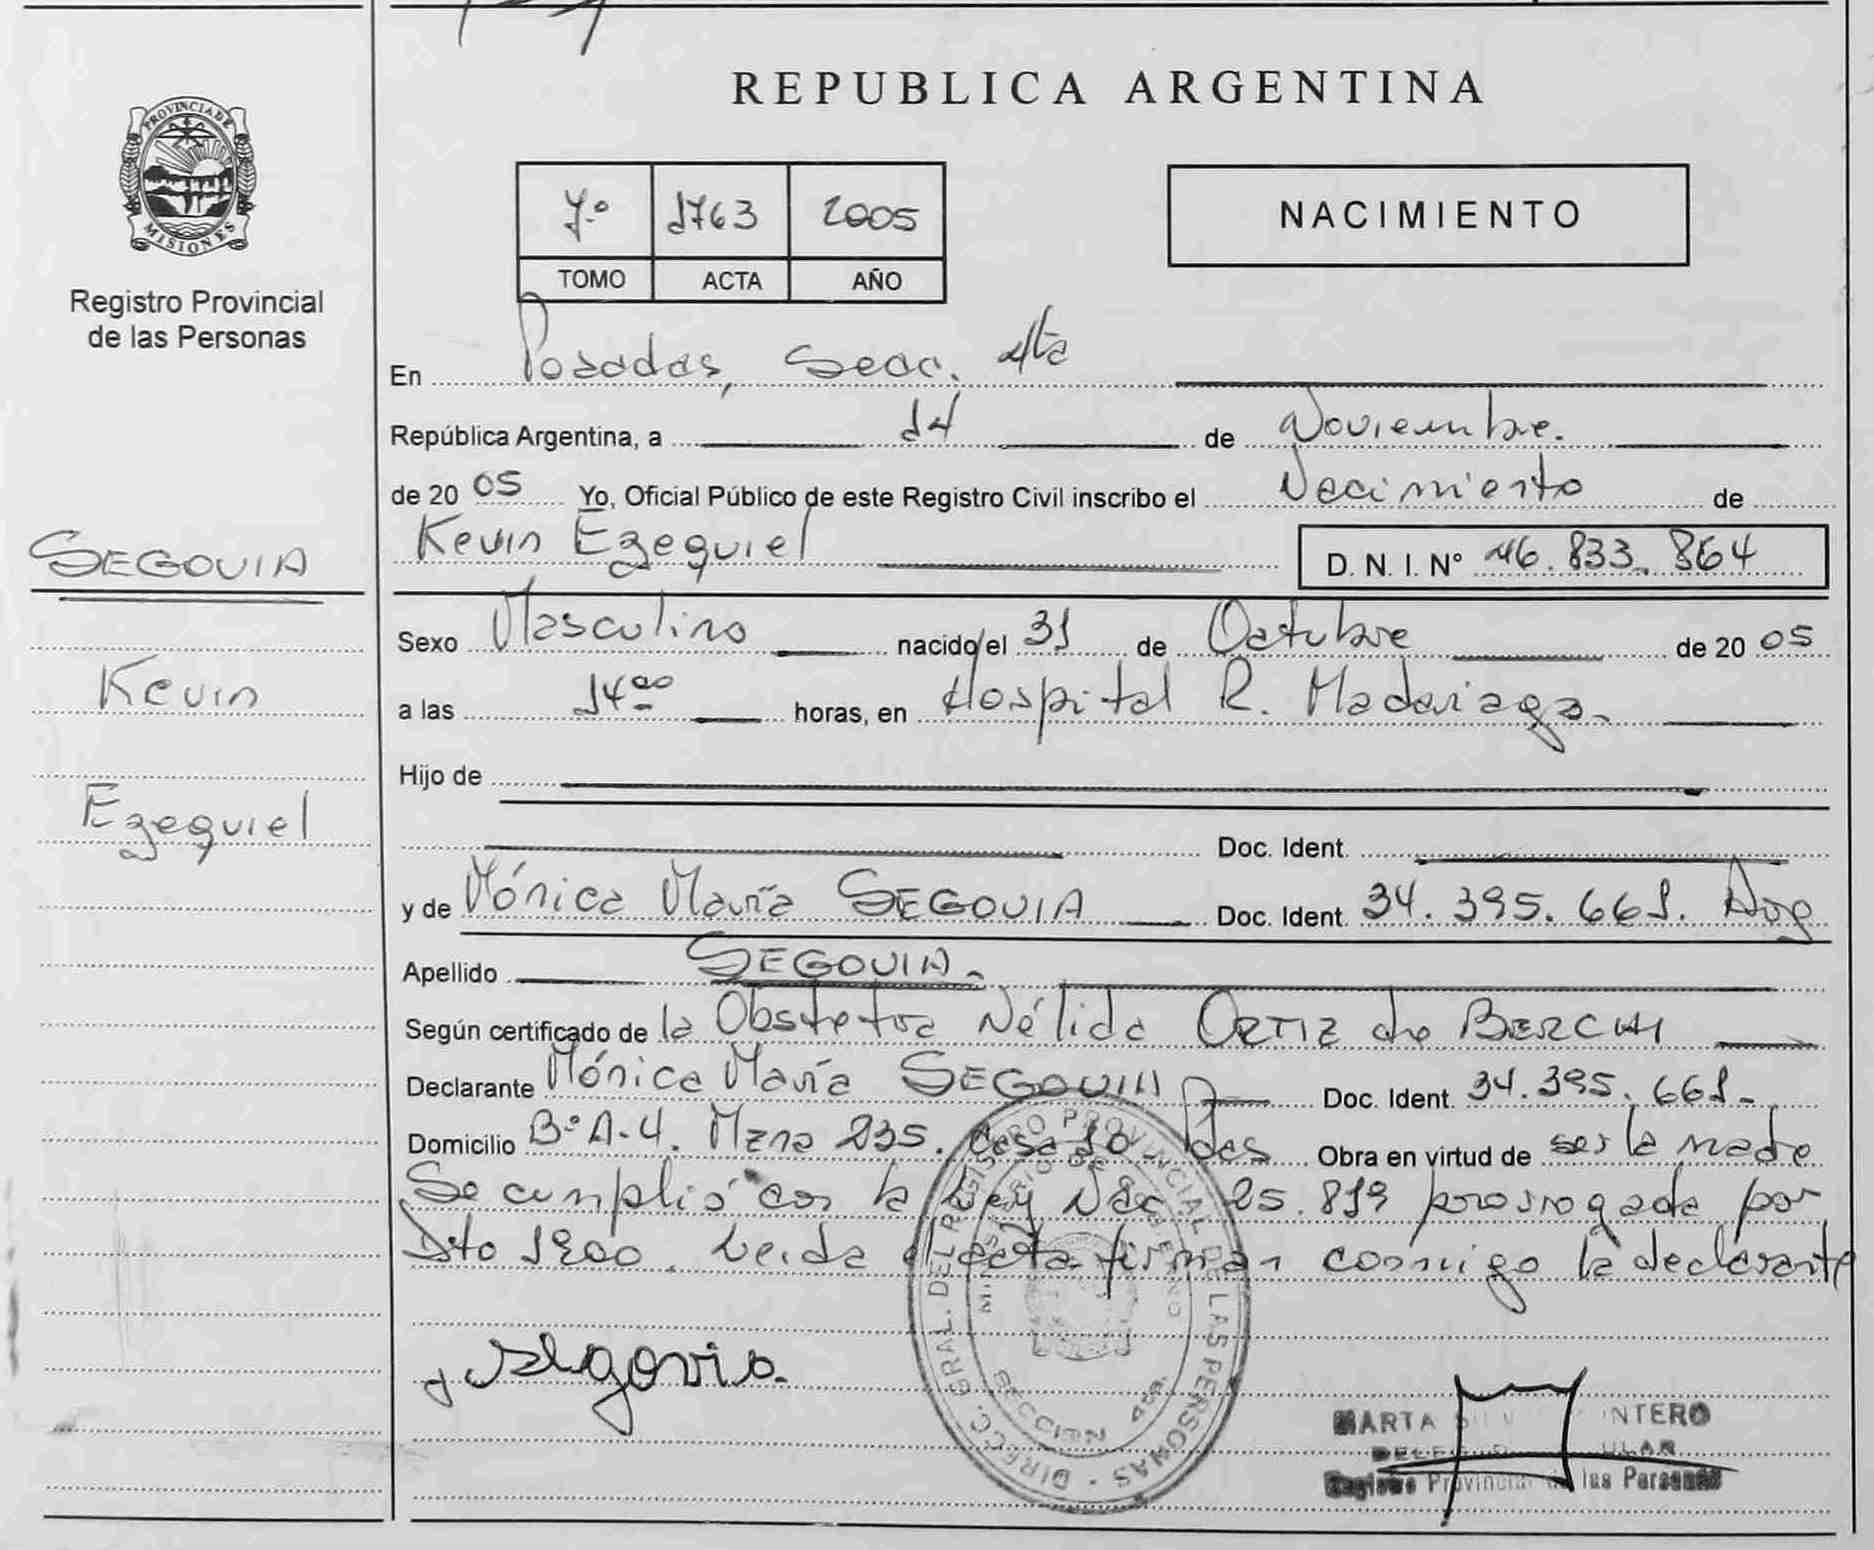 PROVINCIA DE
MISIONES
Registro Provincial
de las Personas
SEGOVIA
Kevin
Ezequiel
REPUBLICA ARGENTINA
7.º 1763 2005
TOMO ACTA AÑO
NACIMIENTO
En Posadas, Secc. 4ta
República Argentina, a 14 de Noviembre.
de 20 05 Yo, Oficial Público de este Registro Civil inscribo el Nacimiento de
Kevin Ezequiel D. N. I. Nº 46.833.864
Sexo Masculino nacido/el 31 de Octubre de 20 05
a las 14 00 horas, en Hospital R. Madariaga.
Hijo de
Doc. Ident.
y de Mónica María SEGOVIA Doc. Ident. 34.395.661. Arg
Apellido SEGOVIA.
Según certificado de la Obstetra Nélida ORTIZ de BERCHI
Declarante Mónica María SEGOVIA Doc. Ident. 34.395.661.
Domicilio Bº A-4. Mzna 235. Casa 10 Pdas Obra en virtud de ser la madre
Se cumplió con la Ley Nac 25.819 prorrogada por
Dto 1200. Leida el acta firman conmigo la declarante
Segovia.
DIRECC. GRAL. DEL REGISTRO PROVINCIAL DE LAS PERSONAS
MINISTERIO DE GOBIERNO
SECCION 4ta.
MARTA
Registro Provincial de las Personas